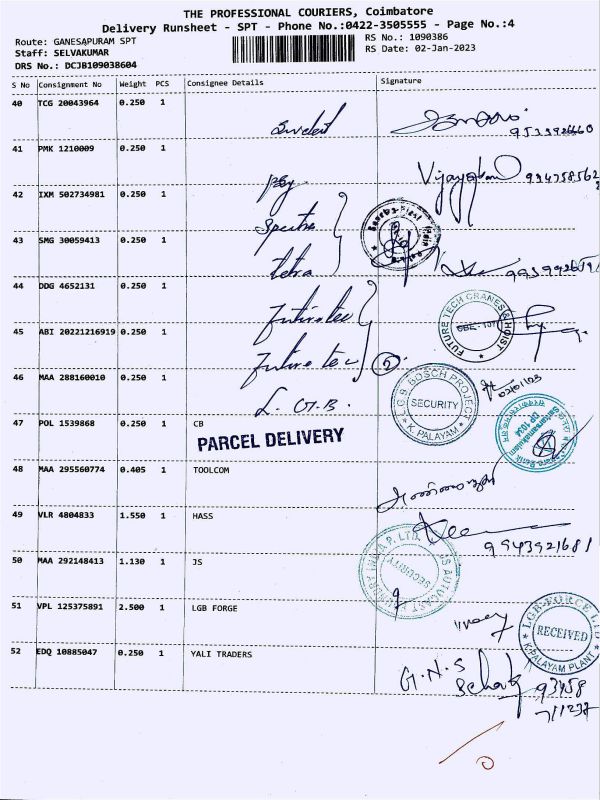 THE PROFESSIONAL COURIERS, Coimbatore
Delivery Runsheet - SPT - Phone No.:0422-3505555 - Page No.:4
Route: GANESAPURAM SPT RS No.: 1090386
Staff: SELVAKUMAR RS Date: 02-Jan-2023
DRS No.: DCJB109038604
S No Consignment No Weight PCS Consignee Details Signature
40 TCG 20043964 0.250 1
41 PMK 1210009 0.250 1
Vijay
42 IXM 502734981 0.250 1
Spectra
43 SMG 30059413 0.250 1
tetra
44 DDG 4652131 0.250 1
Futuretec
FUTURE TECH CRANES & HOIST
45 ABI 20221216919 0.250 1
Future tec 2
46 MAA 288160010 0.250 1
L.G.B. 02/01/23
L.G.B. BOSCH PROJECT
SECURITY
K. PALAYAM
47 POL 1539868 0.250 1 CB
PARCEL DELIVERY
DP 1034
48 MAA 295560774 0.405 1 TOOLCOM
49 VLR 4804833 1.550 1 HASS
9943921681
50 MAA 292148413 1.130 1 JS
JS AUTOCAST
INDIA P. LTD.
SECURITY
51 VPL 125375891 2.500 1 LGB FORGE
LGB-FORCE LTD
RECEIVED
K.PALAYAM PLANT
52 EDQ 10885047 0.250 1 YALI TRADERS
G.N.S
93458
711237